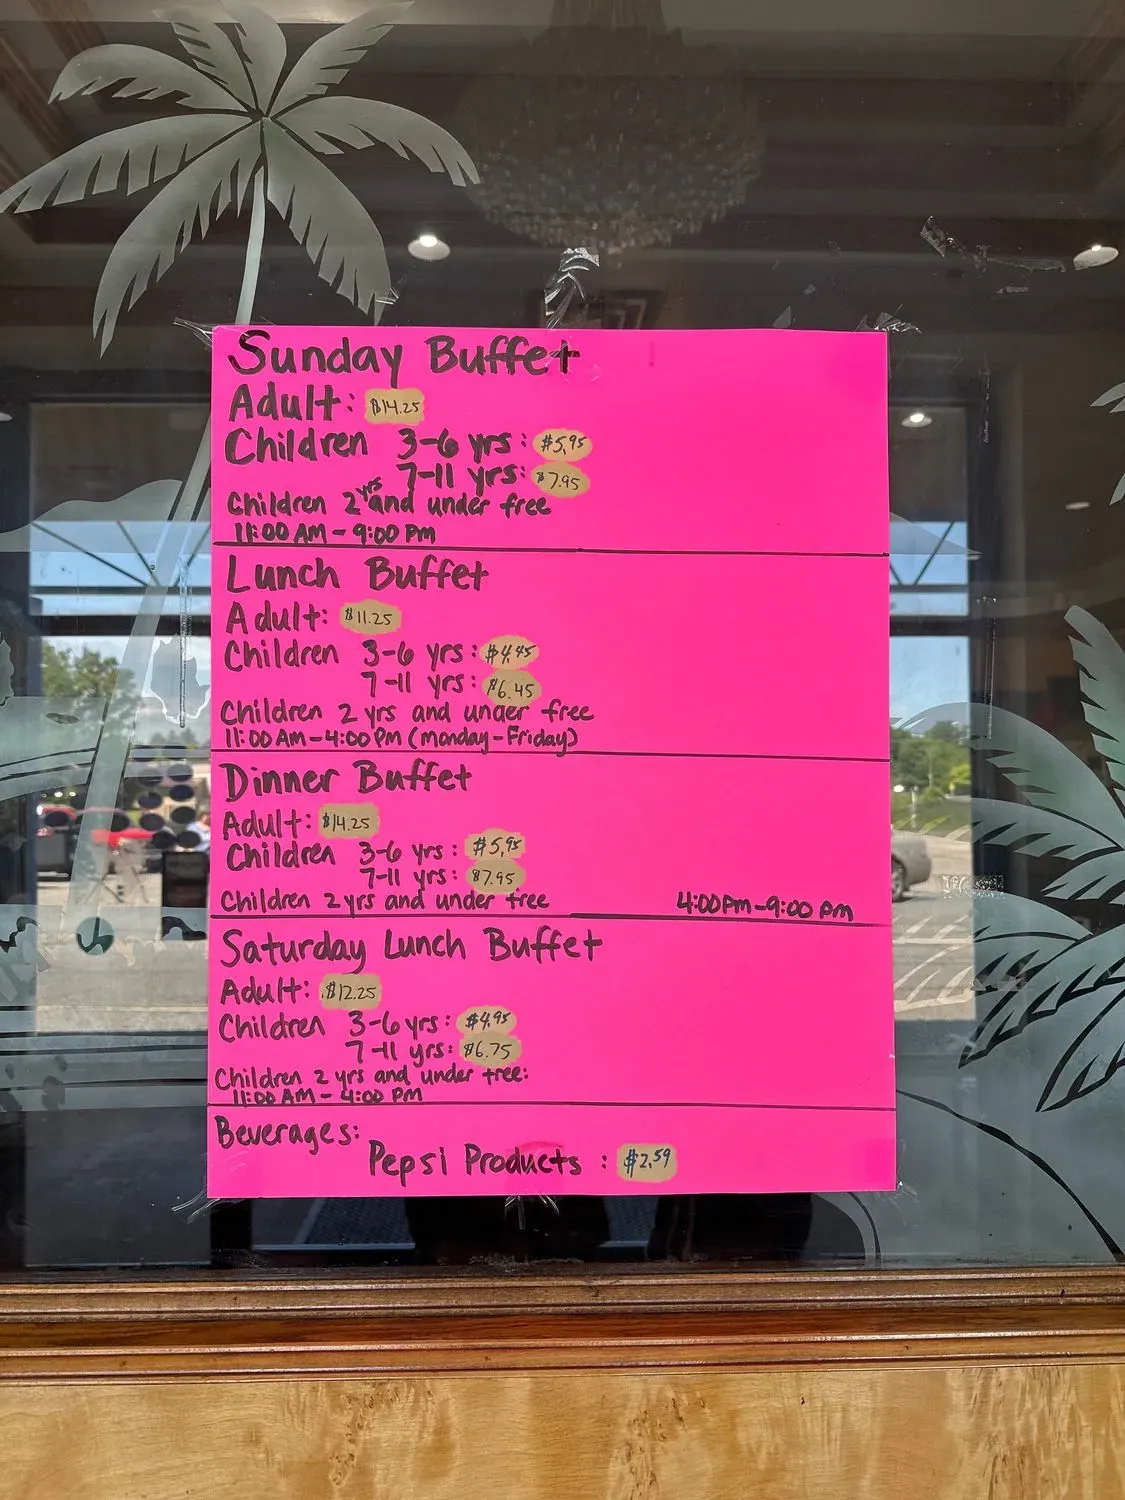 Sunday Buffet
Adult: $14.25
Children 3-6 yrs: $5.95
7-11 yrs: $7.95
Children 2 yrs and under free
11:00 AM - 9:00 PM
Lunch Buffet
Adult: $11.25
Children 3-6 yrs: $4.45
7-11 yrs: $6.45
Children 2 yrs and under free
11:00 AM - 4:00 PM (Monday - Friday)
Dinner Buffet
Adult: $14.25
Children 3-6 yrs: $5.95
7-11 yrs: $7.95
Children 2 yrs and under free 4:00 PM - 9:00 PM
Saturday Lunch Buffet
Adult: $12.25
Children 3-6 yrs: $4.95
7-11 yrs: $6.75
Children 2 yrs and under free:
11:00 AM - 4:00 PM
Beverages:
Pepsi Products : $2.59